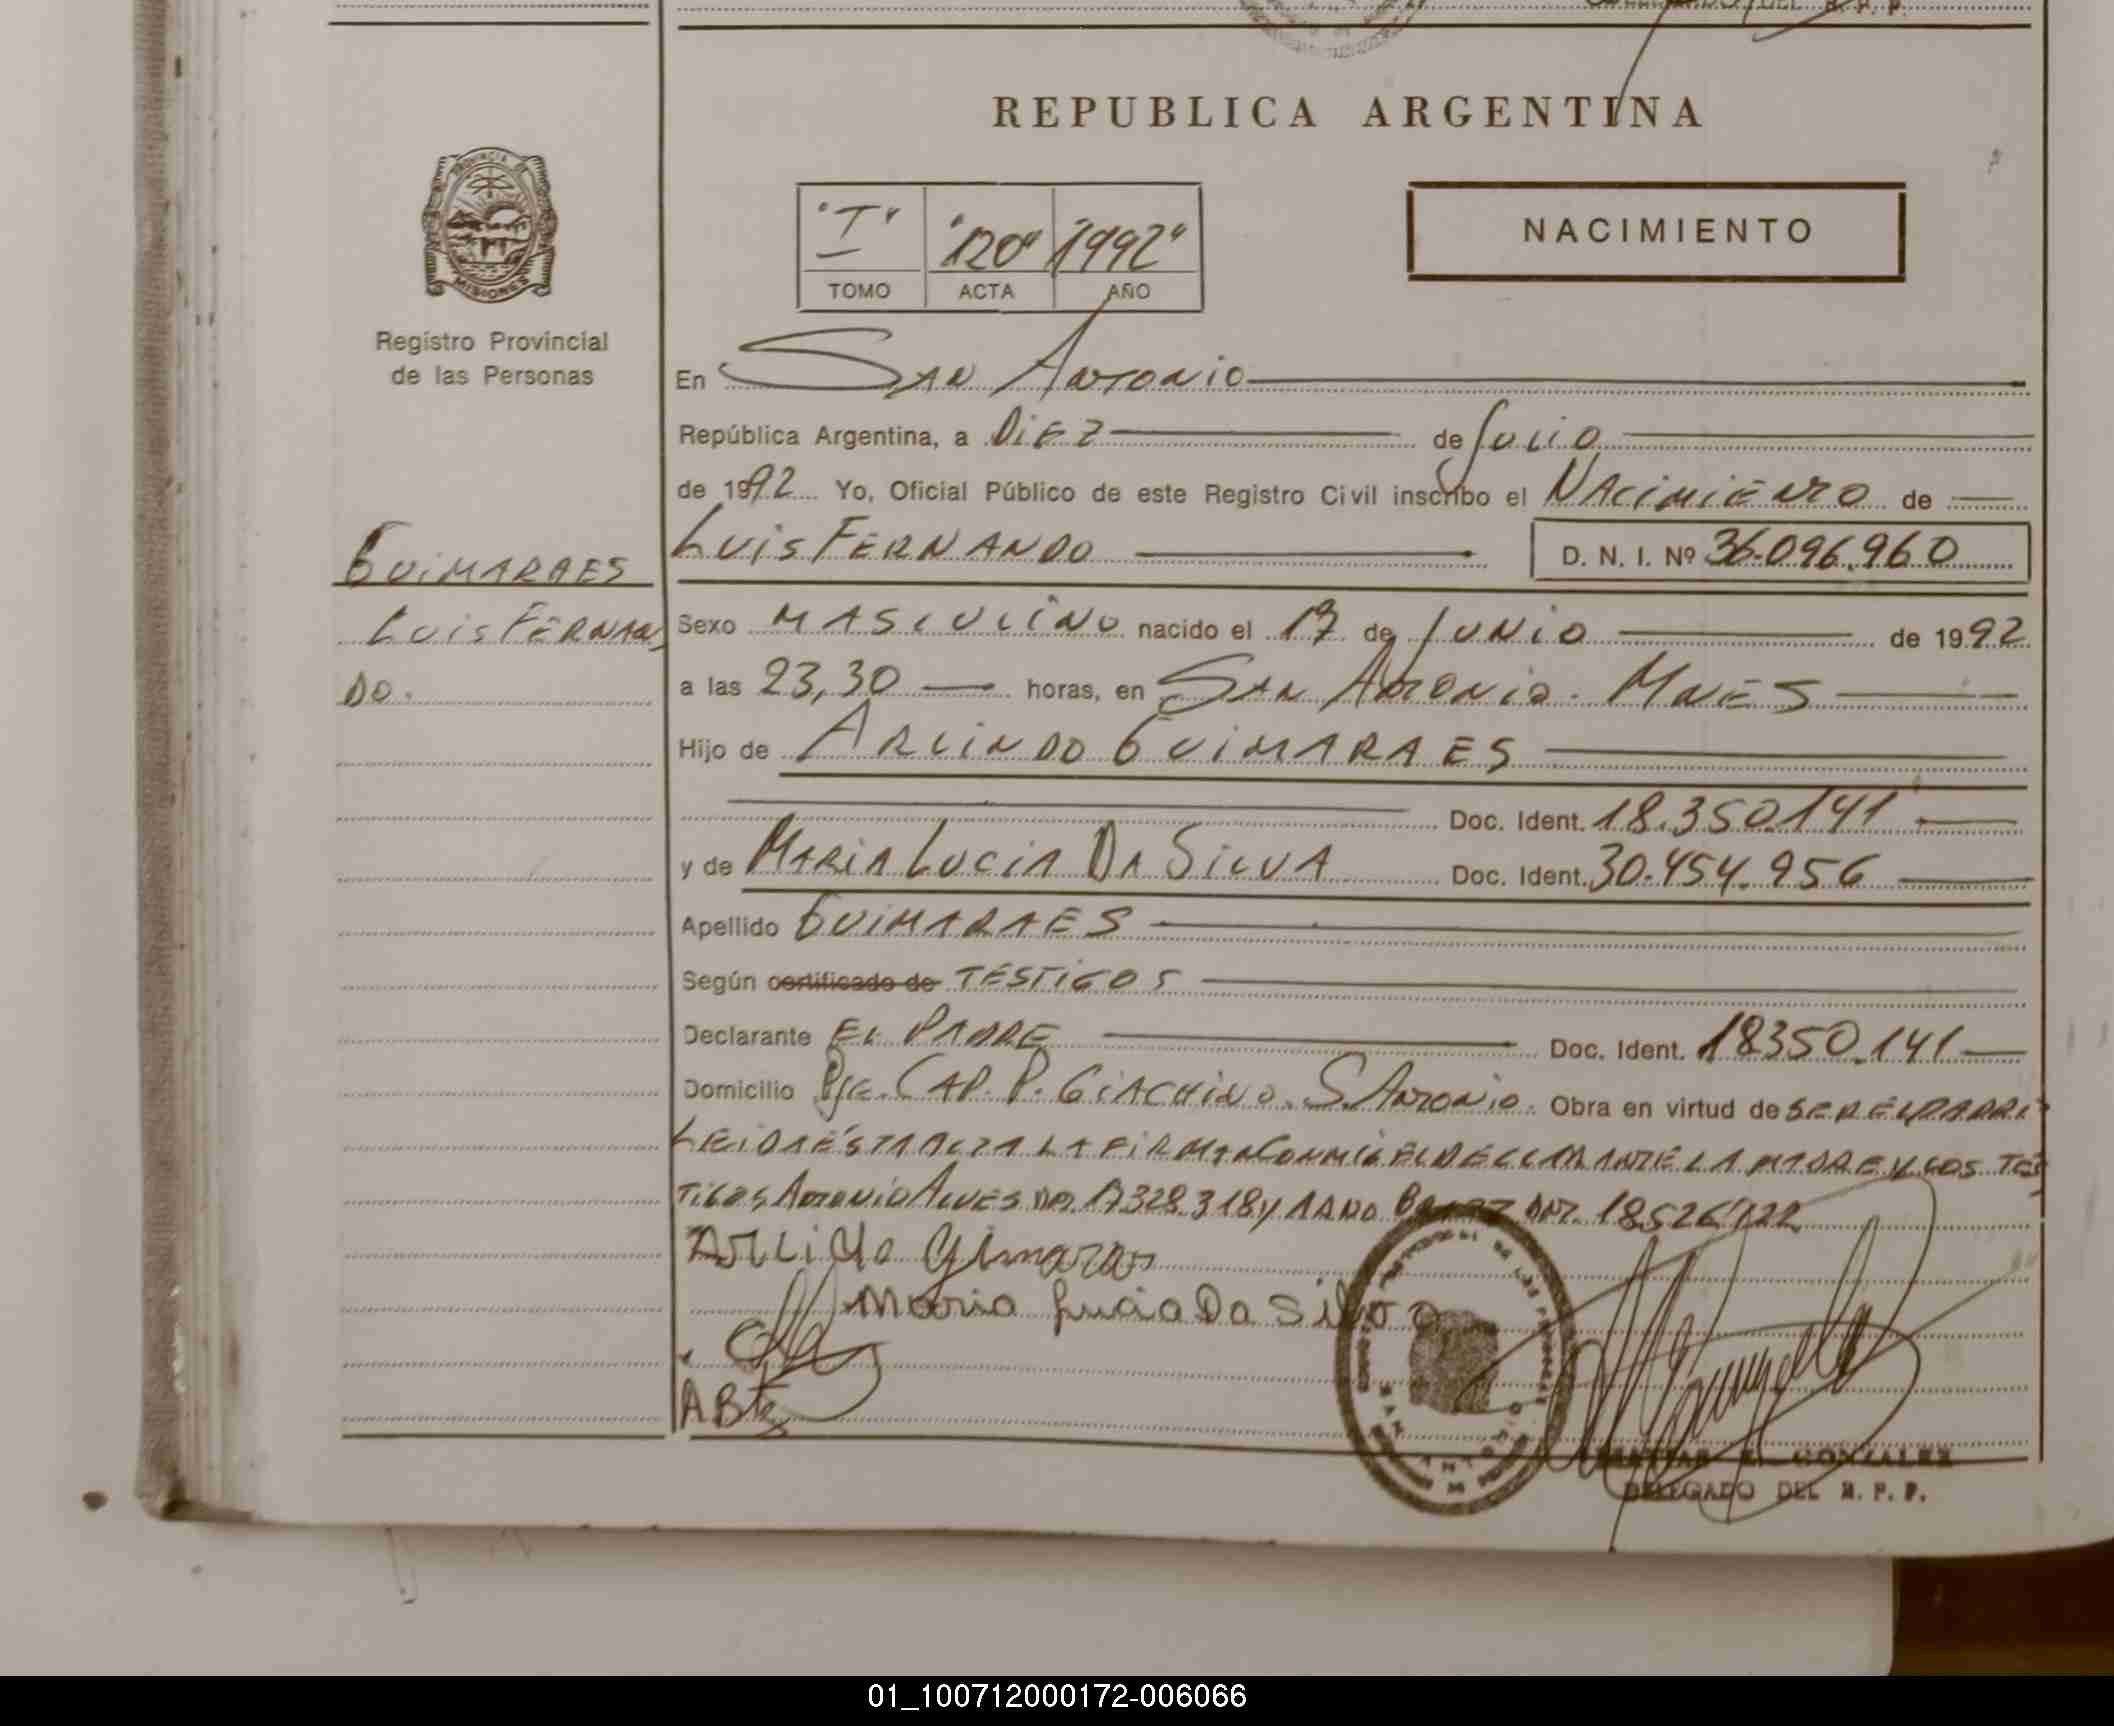 REPUBLICA ARGENTINA
PROVINCIA DE
MISIONES
Registro Provincial
de las Personas
"I" "120" "1992"
TOMO ACTA AÑO
NACIMIENTO
En San Antonio
República Argentina, a Diez de Julio
de 1992 Yo, Oficial Público de este Registro Civil inscribo el Nacimiento de
Luis Fernando D. N. I. Nº 36.096.960
Guimaraes
Luis Fernan
do.
Sexo Masculino nacido el 17 de Junio de 1992
a las 23,30 horas, en San Antonio. Mnes
Hijo de Arlindo Guimaraes
Doc. Ident. 18.350.141
y de Maria Lucia Da Silva Doc. Ident. 30.454.956
Apellido Guimaraes
Según certificado de Testigos
Declarante El Padre Doc. Ident. 18350.141
Domicilio Pje. Cap. P. Giachino. S. Antonio. Obra en virtud de ser el padre
Leida esta acta la firman conmigo el declarante la madre y los tes
tigos, Antonio Alves 17.328.318 y 18526722
Maria Lucia Da Silva
GONZALEZ
DELEGADO DEL R. P. P.
01_100712000172-006066